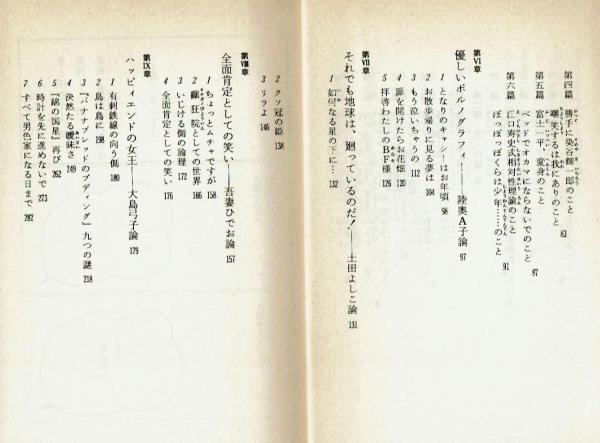 第四篇 勝手に染谷輝一郎のこと 83
嘲笑するは我にありのこと
第五篇 富士一平、変身のこと 87
ベッドでオカマにならないでのこと
第六篇 江口寿史式相対性理論のこと 91
ぽっぽっぽくらは少年……のこと
第Ⅵ章
優しいポルノグラフィ——陸奥A子論 97
1 となりのキャシーはお年頃 98
2 お散歩帰りに見る夢は 104
3 もう泣いちゃうの 112
4 扉を開けたらお花畑 120
5 拝啓わたしのBF様 126
第Ⅶ章
それでも地球は、廻っているのだ!——土田よしこ論 131
1 如何なる星の下に… 132
2 クソ冠の姫 138
3 リラよ 146
第Ⅷ章
全面肯定としての笑い——吾妻ひでお論 157
1 ちょっとムチャですが 158
2 癲狂院としての世界 166
3 いじける側の論理 172
4 全面肯定としての笑い 176
第Ⅸ章
ハッピィエンドの女王——大島弓子論 179
1 有刺鉄線の向う側 180
2 鳥は鳥に 198
3 『バナナブレッドのプディング』九つの謎 218
4 決然たる曖昧さ 249
5 『綿の国星』再び 262
6 時計を先に進めないで 273
7 すべて男色家になる日まで 282